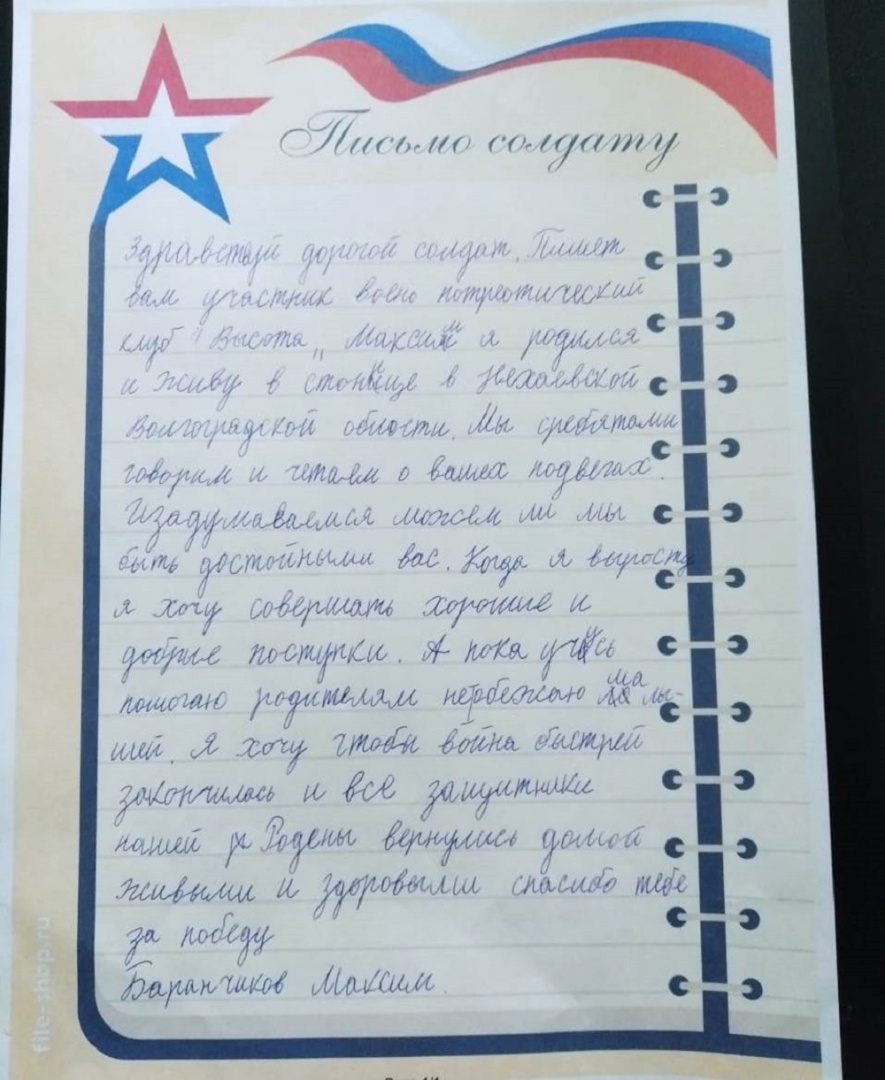 Письмо солдату
Здравствуй дорогой солдат. Пишет
вам участник воено потреотический
клуб "Высота„ Максим я родился
и живу в станице в Нехаевской
Волгоградской области. Мы сребятами
говорим и четаем о вашех подвегах.
Изадумаваемся можем ли мы
быть достойными вас. Когда я выросту
я хочу совершать хорошие и
добрые поступки. А пока учусь
помогаю родителям необежаю малы-
шей. Я хочу чтобы война быстрей
закончилась и все защитники
нашей Родены вернулись домой
живыми и здоровыми спасибо тебе
за победу
Баранчиков Максим.
file-shop.ru